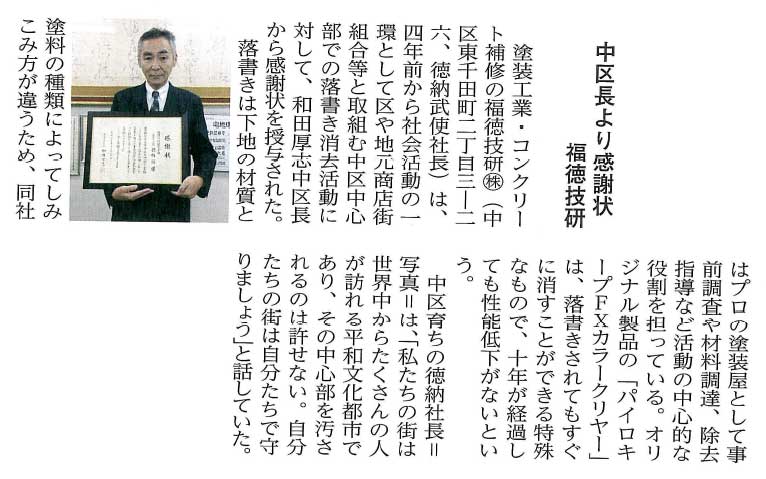 中区長より感謝状
福徳技研
塗装工業・コンクリー
ト補修の福徳技研㈱(中
区東千田町二丁目三―二
六、徳納武使社長)は、
四年前から社会活動の一
環として区や地元商店街
組合等と取組む中区中心
部での落書き消去活動に
対して、和田厚志中区長
から感謝状を授与された。
落書きは下地の材質と
塗料の種類によってしみ
こみ方が違うため、同社
はプロの塗装屋として事
前調査や材料調達、除去
指導など活動の中心的な
役割を担っている。オリ
ジナル製品の「パイロキ
ープFXカラークリヤー」
は、落書きされてもすぐ
に消すことができる特殊
なもので、十年が経過し
ても性能低下がないとい
う。
中区育ちの徳納社長=
写真=は、「私たちの街は
世界中からたくさんの人
が訪れる平和文化都市で
あり、その中心部を汚さ
れるのは許せない。自分
たちの街は自分たちで守
りましょう」と話していた。
感謝状